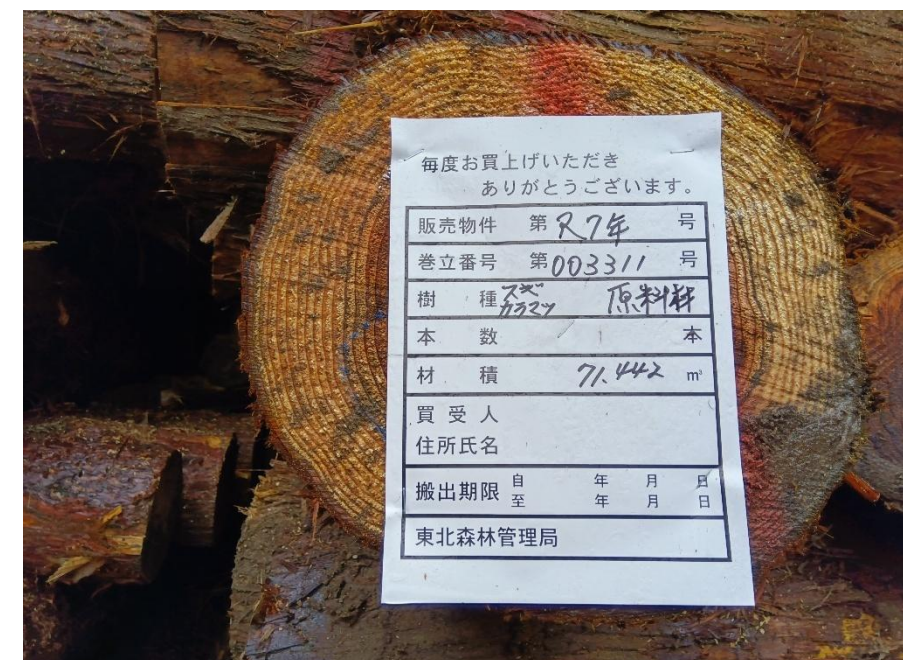 毎度お買上げいただき
ありがとうございます。
販売物件 第 R7年 号
巻立番号 第 003311 号
樹種 スギ カラマツ 原料材
本数 本
材積 71.442 m³
買受人
住所氏名
搬出期限 自 年 月 日
至 年 月 日
東北森林管理局